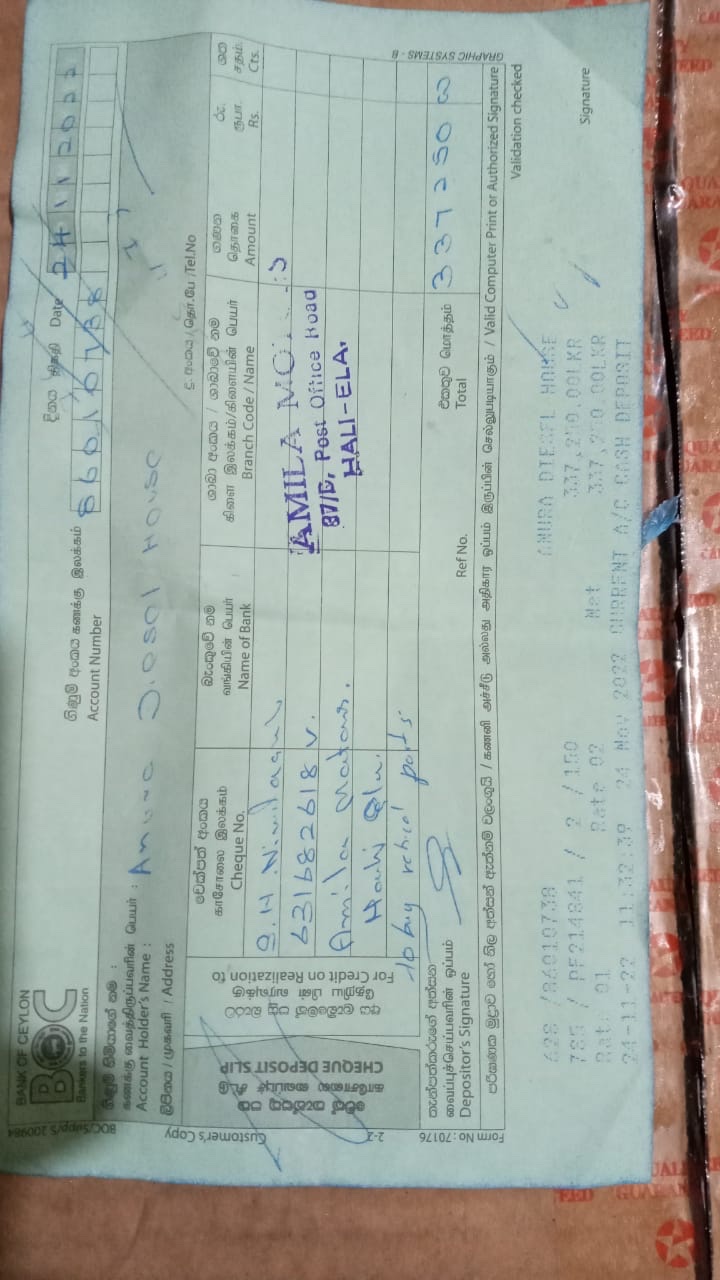 BANK OF CEYLON
BOC
Bankers to the Nation
දිනය திகதி Date 24 11 2022
ගිණුම් අංකය கணக்கு இலக்கம்
Account Number
86010738
ගිණුම් හිමියාගේ නම :
கணக்கு வைத்திருப்பவரின் பெயர் :
Account Holder's Name :
Anura Diesel House
ලිපිනය / முகவரி / Address
දු. අංකය / தொ.பே /Tel.No
චෙක්පත් අංකය
காசோலை இலக்கம்
Cheque No.
බැංකුවේ නම
வங்கியின் பெயர்
Name of Bank
ශාඛා අංකය / ශාඛාවේ නම
கிளை இலக்கம்/கிளையின் பெயர்
Branch Code / Name
ගණන
தொகை
Amount
රු.
ரூபா
Rs.
ශත
சதம்
Cts.
631682618 V.
Amila Motors.
Hali Ela.
to buy vehical parts
AMILA
87/D, Post Office Road
HALI-ELA.
CHEQUE DEPOSIT SLIP
For Credit on Realization to
තැන්පත්කරුගේ අත්සන
வைப்புச்செய்பவரின் ஒப்பம்
Depositor's Signature
Ref No.
එකතුව மொத்தம்
Total
337250 00
Valid Computer Print or Authorized Signature
Validation checked
Signature
BOC/Supp/S 200984
Customer's Copy
2-2
Form No : 70176
GRAPHIC SYSTEMS - B
628 /86010738 ANURA DIESEL HOUSE
785 / PF214841 / 2 /150 337,250.00LKR
Rate 01 Rate 02 Net 337,250.00LKR
24-11-22 11:32:39 24 Nov 2022 CURRENT A/C CASH DEPOSIT